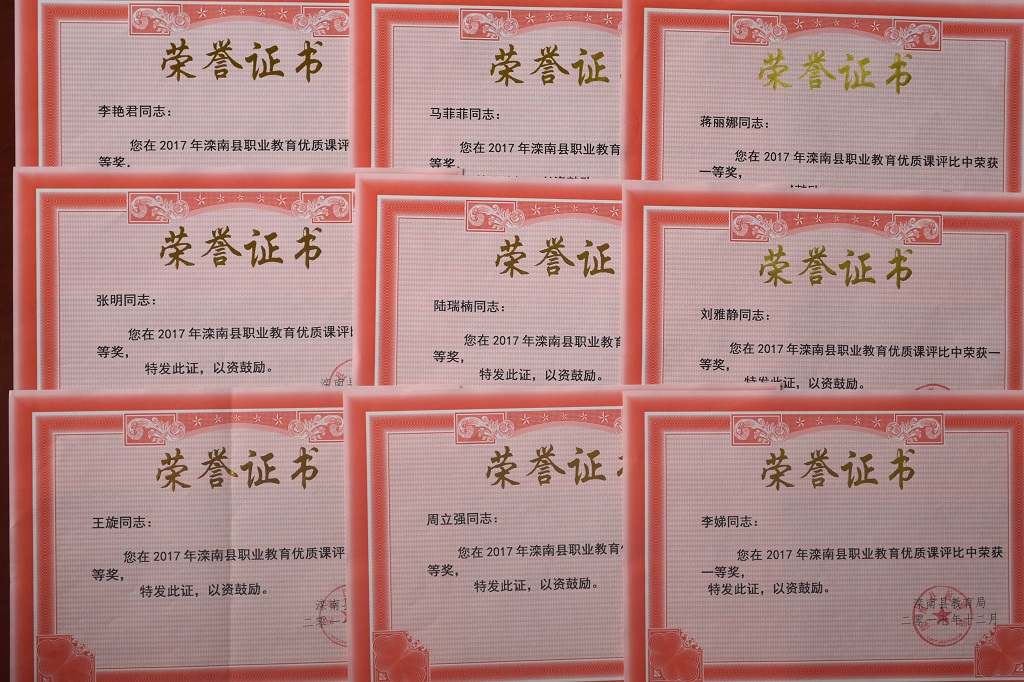 荣誉证书
李艳君同志：
您在 2017 年滦南县职业教育优质课评
等奖，
荣誉证
马菲菲同志：
您在 2017 年滦南县职业教育
等奖，
荣誉证书
蒋丽娜同志：
您在 2017 年滦南县职业教育优质课评比中荣获
一等奖，
荣誉证书
张明同志：
您在 2017 年滦南县职业教育优质课评
等奖，
特发此证，以资鼓励。
滦南县
荣誉证
陆瑞楠同志：
您在 2017 年滦南县职业教育
等奖，
特发此证，以资鼓励。
荣誉证书
刘雅静同志：
您在 2017 年滦南县职业教育优质课评比中荣获一
等奖，
特发此证，以资鼓励。
荣誉证书
王旋同志：
您在 2017 年滦南县职业教育优质课评
等奖，
特发此证，以资鼓励。
滦南县
二零一
荣誉证
周立强同志：
您在 2017 年滦南县职业教育
等奖，
特发此证，以资鼓励。
荣誉证书
李娣同志：
您在 2017 年滦南县职业教育优质课评比中荣获
一等奖，
特发此证，以资鼓励。
滦南县教育局
二零一七年十二月